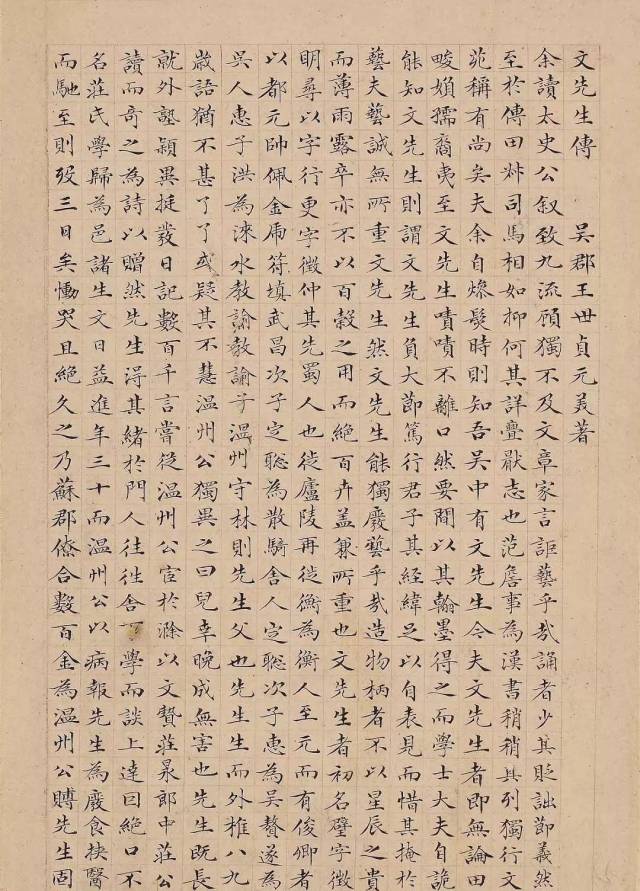 文先生傳　吳郡王世貞元美著
余讀太史公叙致九流顧獨不及文章家言詎藝乎哉誦者少其貶詘節義然
至於傳田叔司馬相如抑何其詳疊厭志也范詹事為漢書稍稍具列獨行文
苑稱有尚矣夫余自燥髮時則知吾吳中有文先生今夫文先生者即無論田
畯媍孺裔夷至文先生嘖嘖不離口然要間以其翰墨得之而學士大夫自詭
能知文先生則謂文先生負大節篤行君子其經緯足以自表見而惜其掩於
藝夫藝誠無所重文先生然文先生能獨廢藝乎哉造物柄者不以星辰之貴
而薄雨露卒亦不以百穀之用而絕百卉盖兼所重也文先生者初名璧字徵
明尋以字行更字徵仲其先蜀人也徙廬陵再徙衡為衡人至元而有俊卿者
以都元帥佩金虎符填武昌次子定聰為散騎舍人定聰次子惠為吳贅遂為
吳人惠子洪為淶水教諭教諭子溫州守林則先生父也先生生而外椎八九
歲語猶不甚了了或疑其不慧溫州公獨異之曰兒幸晚成無害也先生既長
就外塾穎異挺發日記數百千言嘗從溫州公宦於滁以文贄莊㫤郎中莊公
讀而奇之為詩以贈然先生得其緒於門人往往舍下學而談上達因絕口不
名莊氏學歸為邑諸生文日益進年三十而溫州公以病報先生為廢食挾醫
而馳至則歿三日矣慟哭且絕久之乃蘇郡僚合數百金為溫州公賻先生固